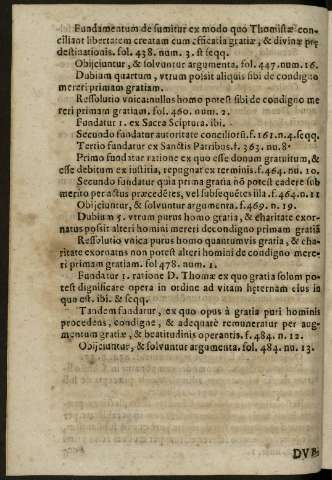 Fundamentum desumitur ex modo quo Thomistæ con-
ciliant libertatem creatam cum efficatia gratiæ, & divinæ prę
destinationis. fol. 438. num. 3. & seqq.
Obijciuntur, & solvuntur argumenta. fol. 447. num. 16.
Dubium quartum, vtrum possit aliquis sibi de condigno
mereri primam gratiam.
Ressolutio vnica: nullus homo potest sibi de condigno me
reri primam gratiam. fol. 460. num. 2.
Fundatur 1. ex Sacra Sciptura. ibi.
Secundo fundatur autoritate conciliorū. f. 161. n. 4. seqq.
Tertio fundatur ex Sanctis Patribus. f. 363. nu. 8.
Primo fundatur ratione ex quo esse donum gratuitum, &
esse debitum ex iustitia, repugnat ex terminis. f. 464. nu. 10.
Secundo fundatur quia prima gratia nō potest cadere sub
merito per actus præcedētes, vel subsequētes illā. f. 464. n. 11
Obijciuntur, & solvuntur argumenta. f. 469. n. 19.
Dubium 5. vtrum purus homo gratia, & charitate exor-
natus possit alteri homini mereri de condigno primam gratiā
Ressolutio vnica purus homo quantumvis gratia, & cha-
ritate exornatus non potest alteri homini de condigno mere-
ri primam gratiam. fol 478. num. 1.
Fundatur 1. ratione D. Thomæ ex quo gratia solum po-
test dignificare opera in ordine ad vitam hęternam eius in
quo est. ibi. & seqq.
Tandem fundatur, ex quo opus à gratia puri hominis
procedens, condigne, & adequatè remuneratur per aug-
mentum gratiæ, & beatitudinis operantis. f. 484. n. 12.
Obijciuntur, & solvuntur argumenta. fol. 484. nu. 13.
DVB-